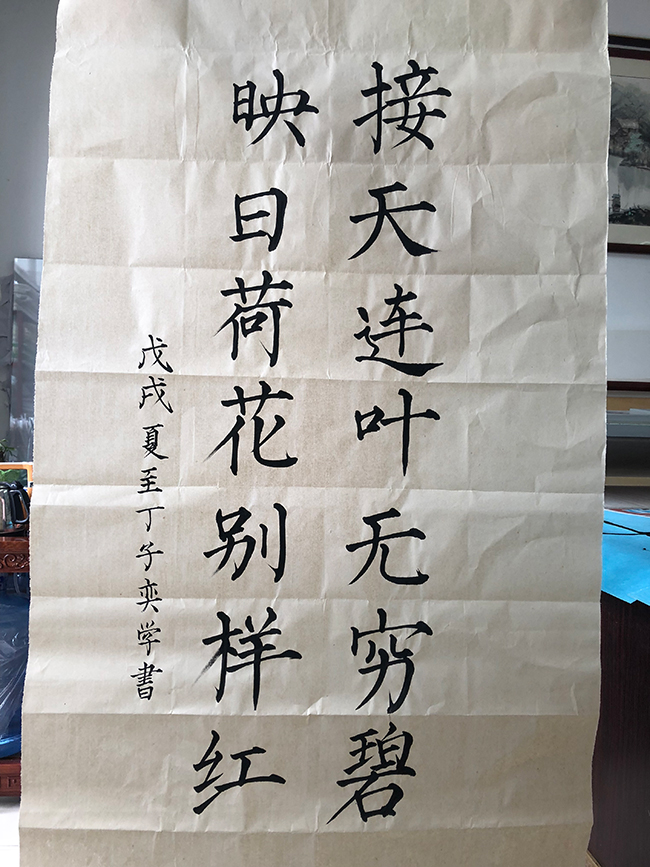 接天连叶无穷碧
映日荷花别样红
戊戌夏至丁子奕学書